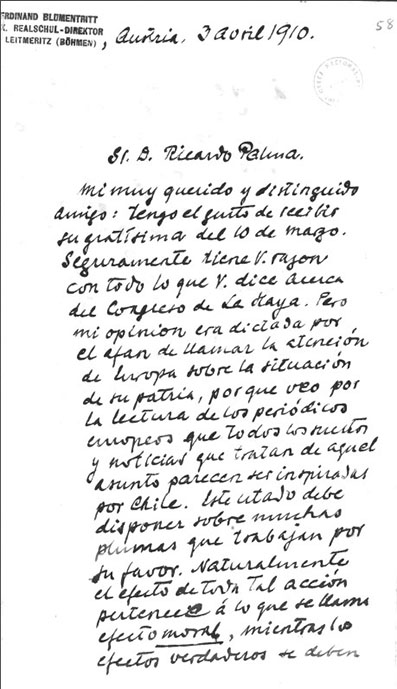 FERDINAND BLUMENTRITT
K. REALSCHUL-DIREKTOR
LEITMERITZ (BÖHMEN)
, Austria, 3 avril 1910.
58
Sr. D. Ricardo Palma.
Mi muy querido y distinguido
amigo: Tengo el gusto de recibir
su gratísima del 10 de marzo.
Seguramente tiene V. razon
con todo lo que V. dice acerca
del Congreso de La Haya. Pero
mi opinion era dictada por
el afan de llamar la atención
de Europa sobre la situación
de su patria, porque veo por
la lectura de los periódicos
europeos que todos los sueltos
y noticias que tratan de aquel
asunto parecen ser inspiradas
por Chile. Este estado debe
disponer sobre muchas
plumas que trabajan por
su favor. Naturalmente
el efecto de toda tal acción
pertenece á lo que se llama
efecto moral, mientras los
efectos verdaderos se deben